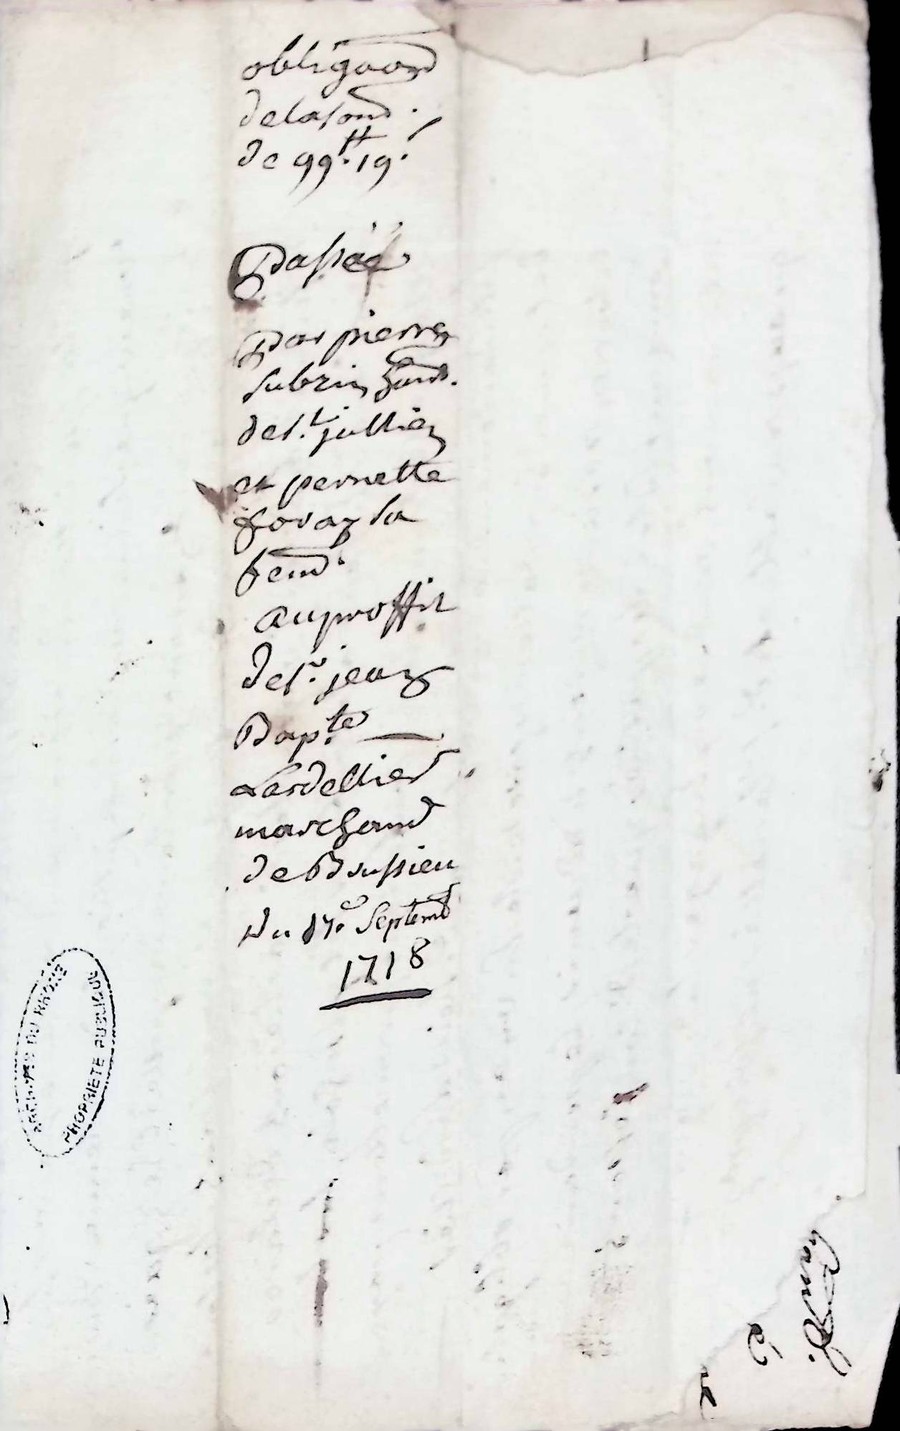 obligaon
de la som.
de 99ᵗᵗ. 19.ˢ
Passée
Par pierre
Subrin hant.
de St. jullien
et pernette
fem.
au proffit
de sr. jean
Bapte.
Lardellier
marchand
de Brussieu
Du 17e. Septemb
1718
ARCHIVES DU RHONE
PROPRIETE PUBLIQUE